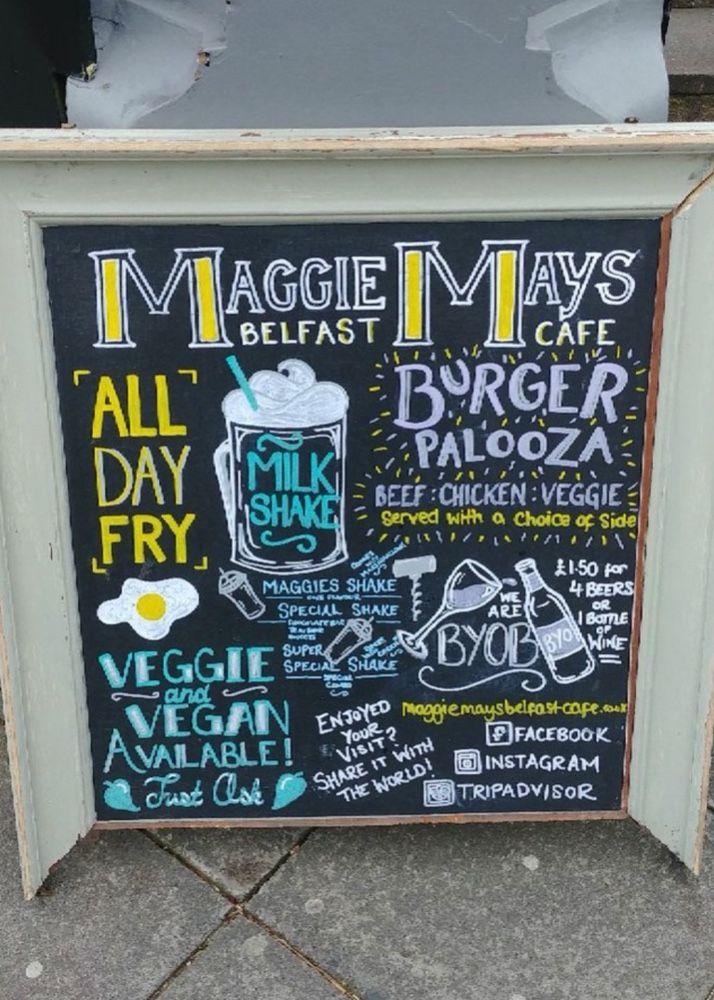 MAGGIE MAYS
BELFAST CAFE
ALL
DAY
FRY
MILK
SHAKE
BURGER
PALOOZA
BEEF : CHICKEN : VEGGIE
Served with a Choice of Side
MAGGIES SHAKE
SPECIAL SHAKE
SUPER
SPECIAL SHAKE
WE
ARE
BYOB
BYO
£1.50 for
4 BEERS
OR
1 BOTTLE
OF
WINE
VEGGIE
and
VEGAN
AVAILABLE!
Just Ask
ENJOYED
YOUR
VISIT?
SHARE IT WITH
THE WORLD!
maggiemaysbelfastcafe.co.uk
FACEBOOK
INSTAGRAM
TRIPADVISOR